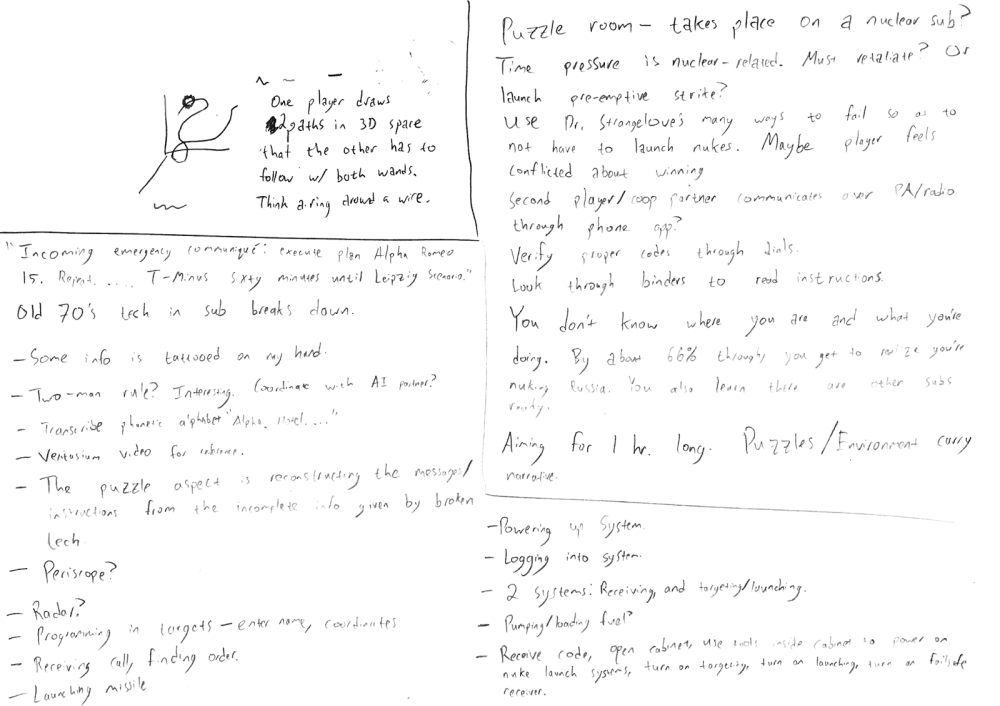 One player draws
2 paths in 3D space
that the other has to
follow w/ both wands.
Think a ring around a wire.
Puzzle room – takes place on a nuclear sub?
Time pressure is nuclear-related. Must retaliate? Or
launch pre-emptive strike?
Use Dr. Strangelove's many ways to fail so as to
not have to launch nukes. Maybe player feels
conflicted about winning
Second player/coop partner communicates over PA/radio
through phone app?
Verify proper codes through dials.
Look through binders to read instructions.
You don't know where you are and what you're
doing. By about 66% through, you get to realize you're
nuking Russia. You also learn there are other subs
ready.
Aiming for 1 hr. long. Puzzles/Environment carry
narrative.
"Incoming emergency communiqué: execute plan Alpha Romeo
15. Repeat..... T-Minus sixty minutes until Leipzig Scenario."
Old 70's tech in sub breaks down.
– Some info is tattooed on my hand.
– Two-man rule? Interesting. Coordinate with AI partner?
– Transcribe phonetic alphabet "Alpha, ...."
– Veritasium video for reference.
– The puzzle aspect is reconstructing the messages/
instructions from the incomplete info given by broken
tech
– Periscope?
– Radar?
– Programming in targets – enter name, coordinates
– Receiving call, finding order.
– Launching missile
– Powering up system.
– Logging into system.
– 2 systems: Receiving, and targeting/launching.
– Pumping/loading fuel?
– Receive code, open cabinet, use tools inside cabinet to power on
nuke launch systems, turn on targeting, turn on launching, turn on failsafe
receiver.